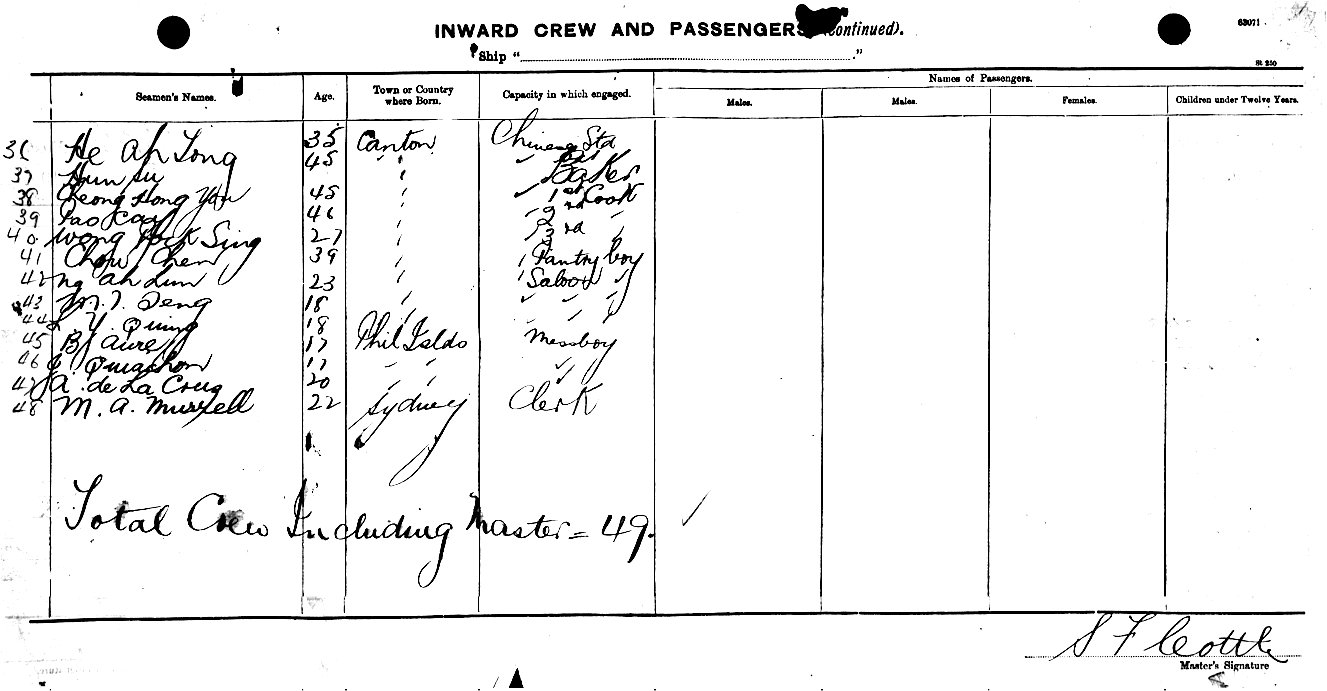 INWARD CREW AND PASSENGERS (Continued).
63071
Ship " "
St 250
Seamen's Names. Age. Town or Country where Born. Capacity in which engaged. Names of Passengers.
Males. Males. Females. Children under Twelve Years.
36 He Ah Tong 35 Canton Chinese Std
37 Hun Su 45 " " Baker
38 Cheong Hong Yan 45 " " 1st Cook
39 46 " 2nd "
40 Wong Sing 27 " 3rd "
41 Chow Chen 39 " " Pantry boy
42 Ng Ah Lun 23 " " Saloon "
43 M. T. Seng 18 " " " "
44 Y. 18 " " " "
45 B. Aure 17 Phil Islds Messboy
46 17 " " "
47 A. de La Cruz 20 " " "
48 M. A. Murrell 22 Sydney Clerk
Total Crew Including Master = 49.
S F Cottle
Master's Signature